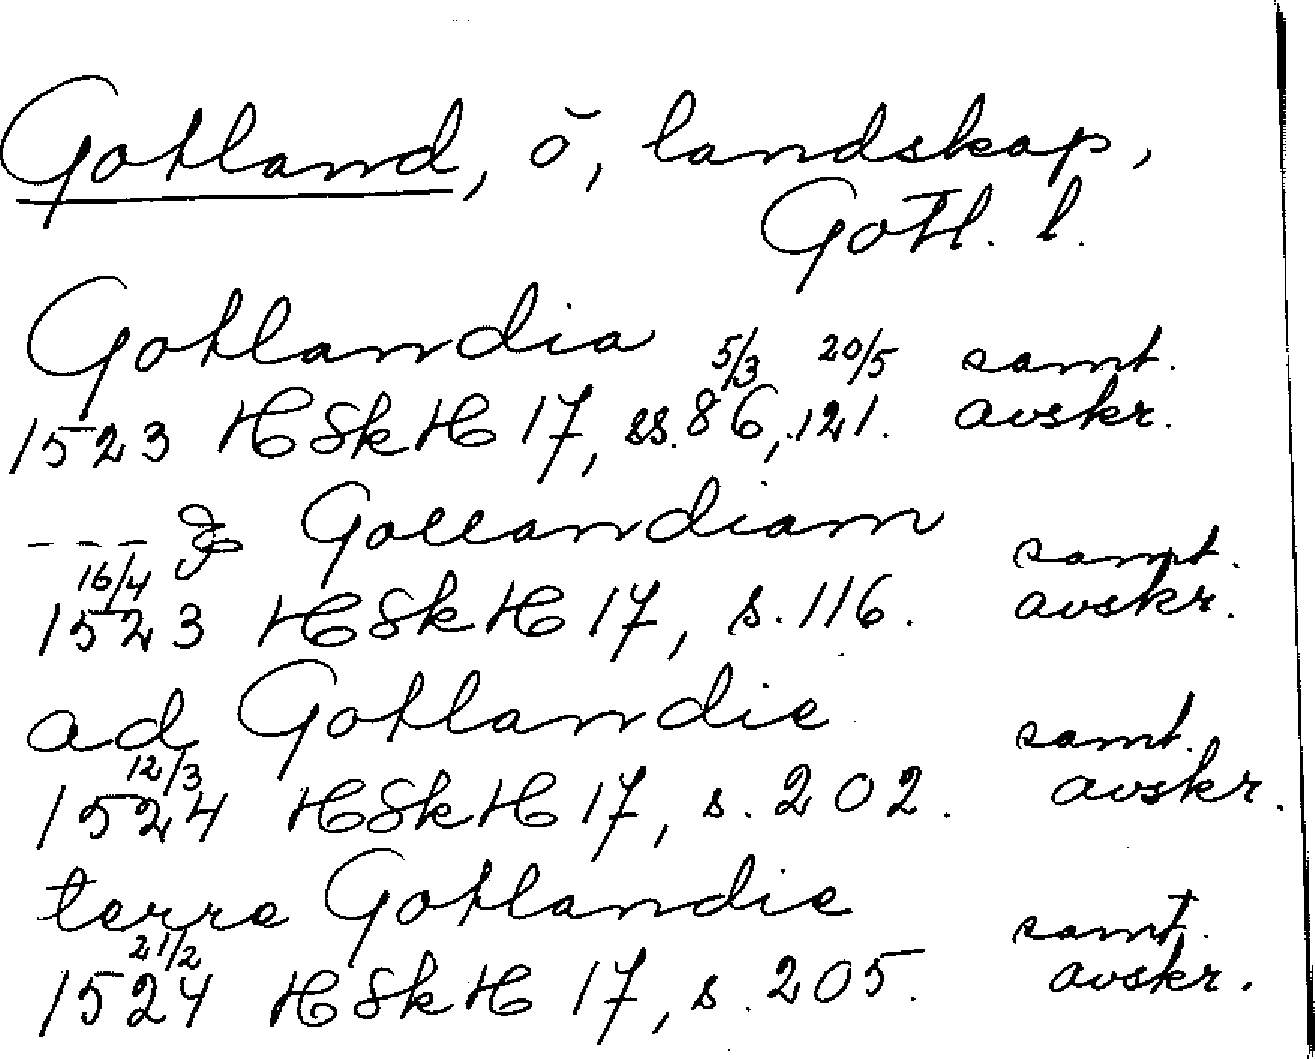 Gotland, ö, landskap,
Gotl. l.
Gotlandia 5/3 20/5 samt.
1523 HSkH 17, ss. 86, 121. avskr.
--- Gollandiam samt.
16/4
1523 HSkH 17, s. 116. avskr.
ad Gotlandie samt.
12/3
1524 HSkH 17, s. 202. avskr.
terre Gotlandie samt.
21/2
1524 HSkH 17, s. 205. avskr.